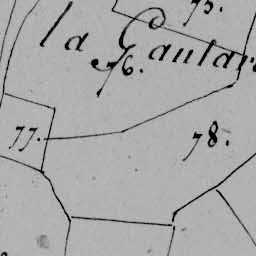 75.
la Gautar
76.
77.
78.